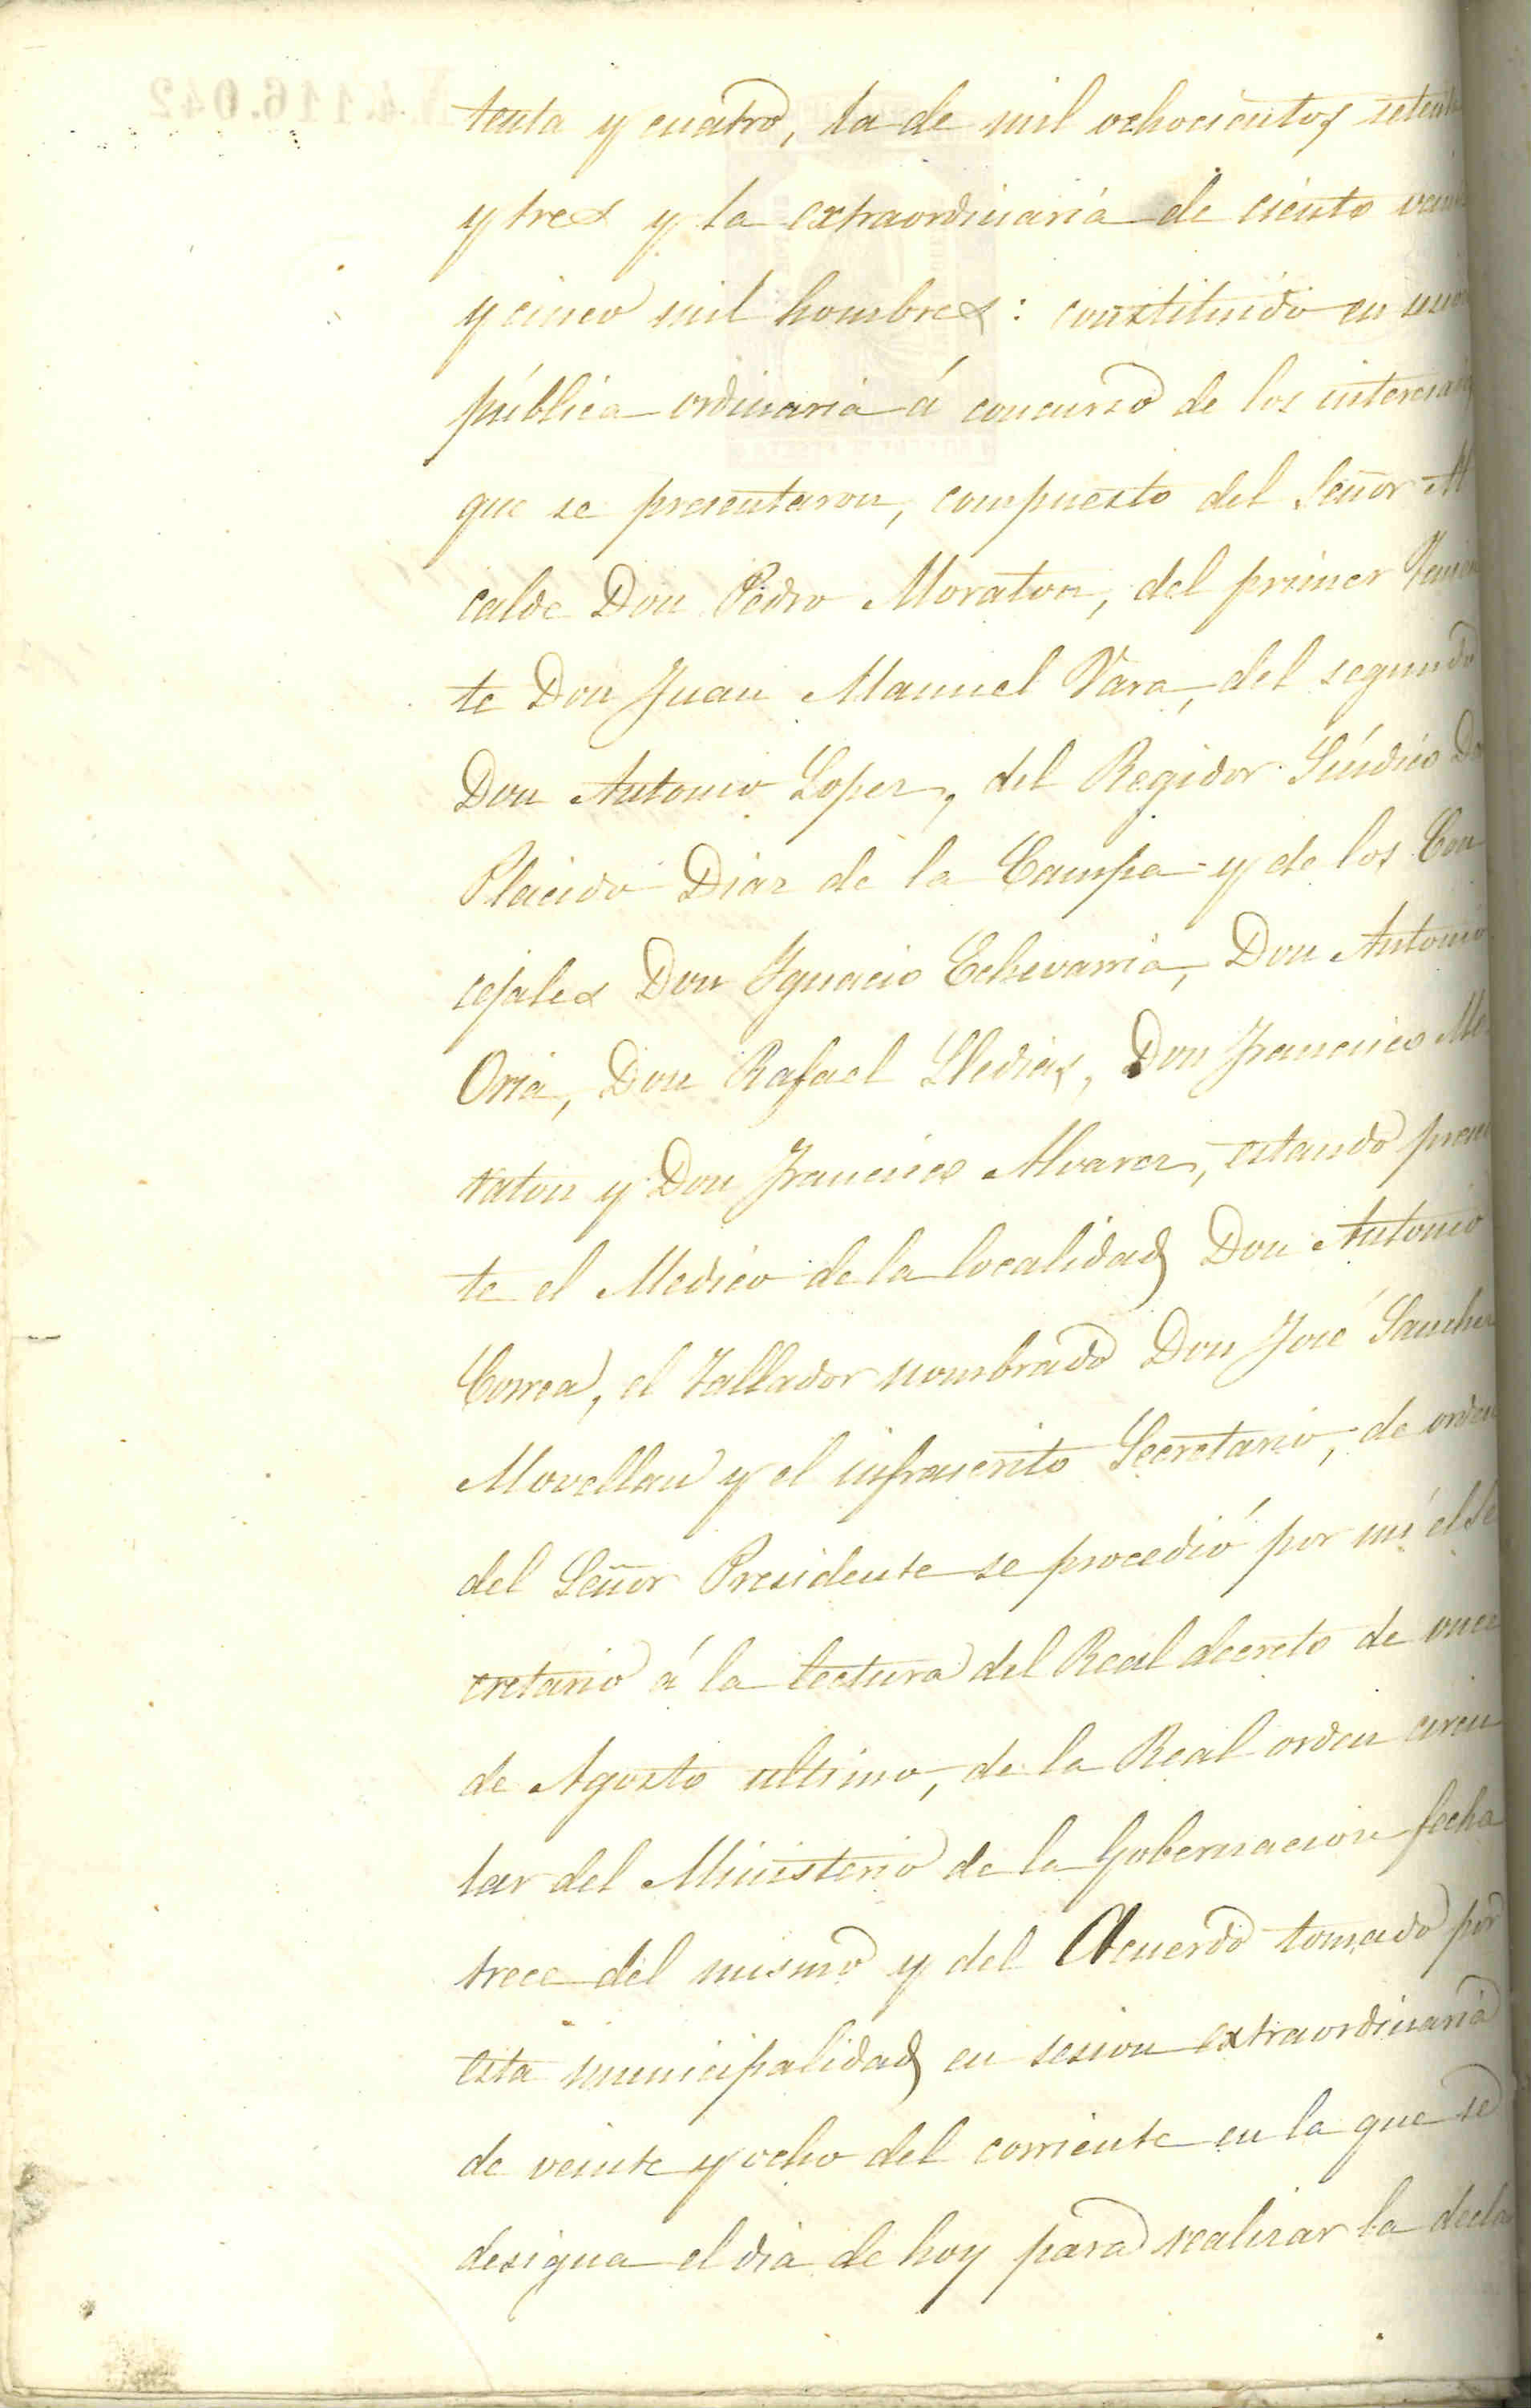 tenta y cuatro, la de mil ochocientos setenta
y tres y la extraordinaria de ciento vein
y cinco mil hombres: constituido en
pública ordinaria á concurso de los interesad
que se presentaron, compuesto del Señor Al
calde Don Pedro Moraton, del primer Tenien
te Don Juan Manuel Vara, del segundo
Don Antonio Lopez, del Regidor Síndico Do
Placido Diaz de la Campa y de los Con
cejales Don Ygnacio Echevarria, Don Antonio
Oria, Don Rafael Lledias, Don Francisco Mo
raton y Don Francisco Alvarez, estando presen
te el Medico de la localidad Don Antonio
Correa, el Tallador nombrado Don José Sanchez
Movellan y el infrascrito Secretario, de orden
del Señor Presidente se procedió por mí el Se
cretario á la lectura del Real decreto de once
de Agosto ultimo, de la Real orden circu
lar del Ministerio de la Gobernacion fecha
trece del mismo y del Acuerdo tomado por
esta municipalidad en sesion extraordinaria
de veinte y ocho del corriente en la que se
designa el dia de hoy para realizar la decla
4.116.042